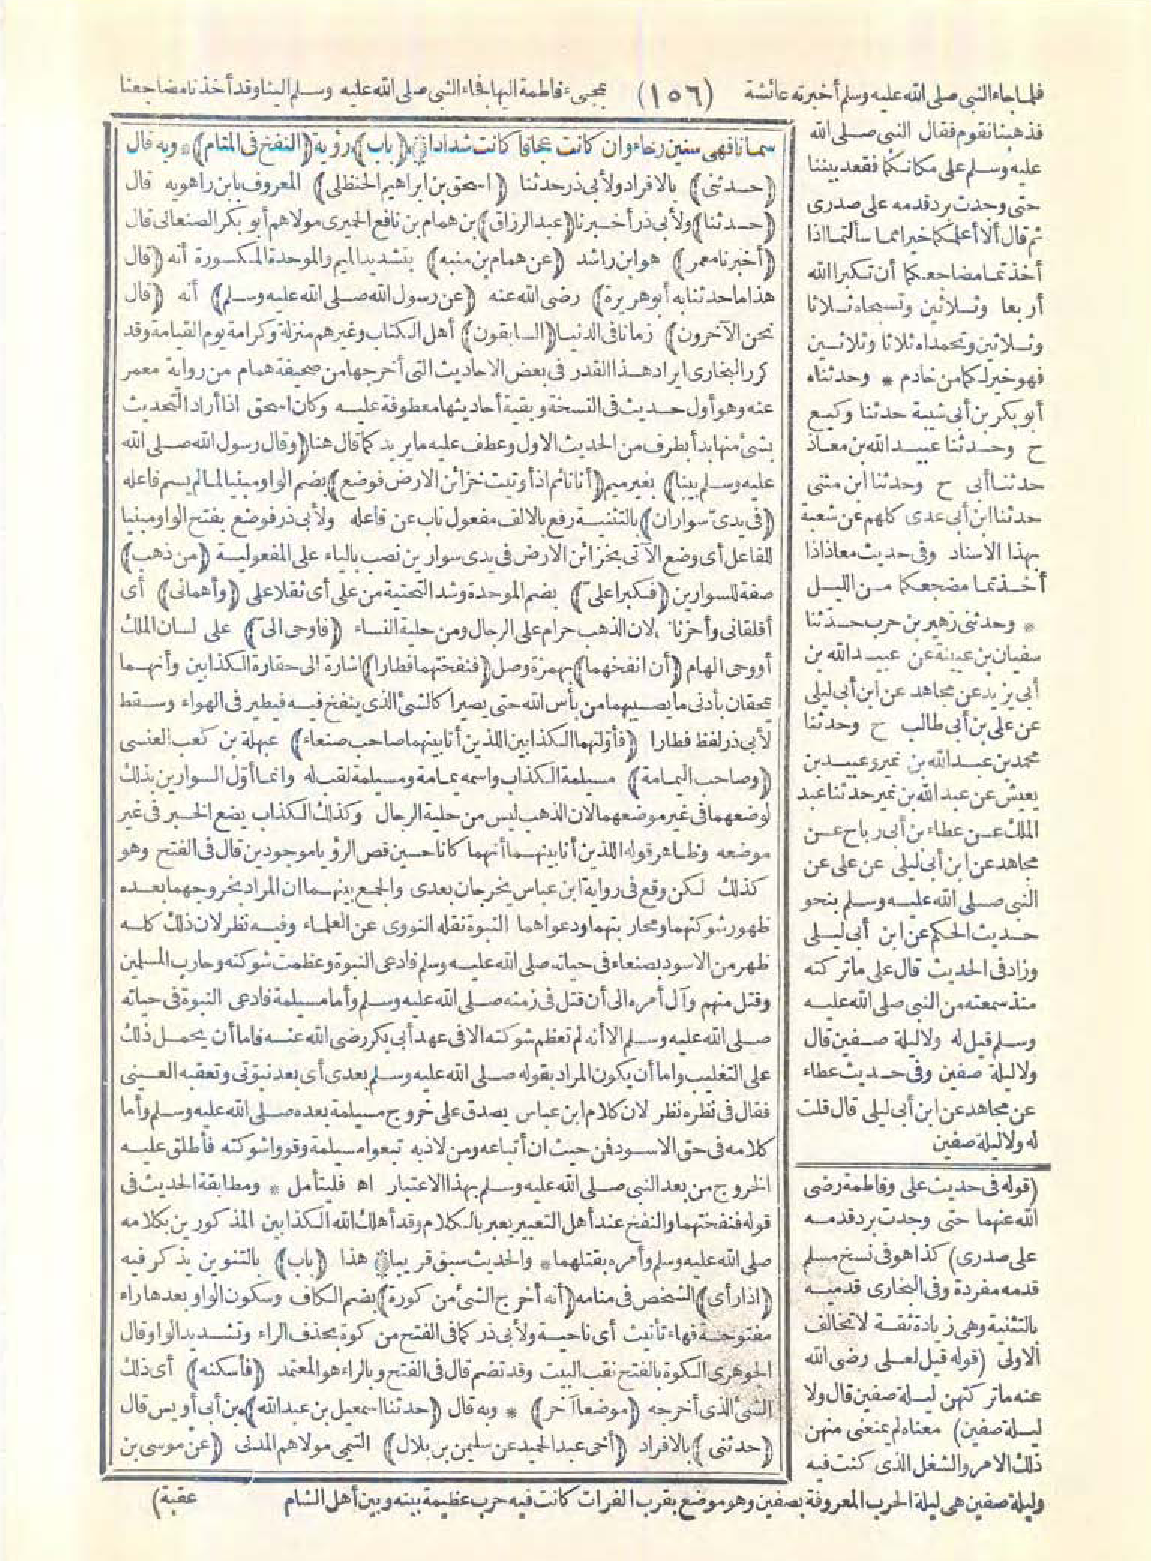 فلما جاء النبي صلى الله عليه وسلم أخبرته عائشة
(١٥٦)
بمجيء فاطمة اليها فجاء النبي صلى الله عليه وسلم الينا وقد أخذنا مضاجعنا
فذهبنا نقوم فقال النبي صلى الله
عليه وسلم على مكانكما فقعد بيننا
حتى وجدت برد قدمه على صدرى
ثم قال ألا أعلمكما خيرا مما سألتما اذا
أخذتما مضاجعكما أن تكبرا الله
أربعا وثلاثين وتسبحاه ثلاثا
وثلاثين وتحمداه ثلاثا وثلاثين
فهو خير لكما من خادم * وحدثناه
أبو بكر بن أبى شيبة حدثنا وكيع
ح وحدثنا عبيد الله بن معاذ
حدثنا أبى ح وحدثنا ابن مثنى
حدثنا ابن أبى عدى كلهم عن شعبة
بهذا الاسناد وفى حديث معاذ اذا
أخذتما مضجعكما من الليل
* وحدثنى زهير بن حرب حدثنا
سفيان بن عيينة عن عبيد الله بن
أبى يزيد عن مجاهد عن ابن أبى ليلى
عن على بن أبى طالب ح وحدثنا
محمد بن عبد الله بن نمير وعبيد بن
يعيش عن عبد الله بن نمير حدثنا عبد
الملك عن عطاء بن أبى رباح عن
مجاهد عن ابن أبى ليلى عن على عن
النبى صلى الله عليه وسلم بنحو
حديث الحكم عن ابن أبى ليلى
وزاد فى الحديث قال على ما تركته
منذ سمعته من النبى صلى الله عليه
وسلم قيل له ولا ليلة صفين قال
ولا ليلة صفين وفى حديث عطاء
عن مجاهد عن ابن أبى ليلى قال قلت
له ولا ليلة صفين
(قوله فى حديث على وفاطمة رضى
الله عنهما حتى وجدت برد قدمه
على صدرى) كذا هو فى نسخ مسلم
قدمه مفردة وفى البخارى قدميه
بالتثنية وهى زيادة ثقة لا تخالف
الاولى (قوله قيل لعلى رضى الله
عنه ما تركتهن ليلة صفين قال ولا
ليلة صفين) معناه لم يمنعنى منهن
ذلك الامر والشغل الذى كنت فيه
وليلة صفين هى ليلة الحرب المعروفة بصفين وهو موضع بقرب الفرات كانت فيه حرب عظيمة بينه وبين أهل الشام
سمانا فهى سنين رخاء وان كانت عجافا كانت شدادا * (باب) رؤية (النفخ فى المنام) * وبه قال
(حدثنى) بالافراد ولأبى ذر حدثنا (اسحق بن ابراهيم الحنظلى) المعروف بابن راهويه قال
(حدثنا) ولأبى ذر أخبرنا (عبد الرزاق) بن همام بن نافع الحميرى مولاهم أبو بكر الصنعانى قال
(أخبرنا معمر) هو ابن راشد (عن همام بن منبه) بتشديد الميم والموحدة المكسورة أنه (قال
هذا ما حدثنا به أبو هريرة) رضى الله عنه (عن رسول الله صلى الله عليه وسلم) أنه (قال
نحن الآخرون) زمانا فى الدنيا (السابقون) أهل الكتاب وغيرهم منزلة وكرامة يوم القيامة وقد
كرر البخارى ايراد هذا القدر فى بعض الاحاديث التى أخرجها من صحيفة همام من رواية معمر
عنه وهو أول حديث فى النسخة وبقية أحاديثها معطوفة عليه وكان اسحق اذا أراد التحديث
بشئ منها بدأ بطرف من الحديث الاول وعطف عليه ما يريد كما قال هنا (وقال رسول الله صلى الله
عليه وسلم بينا) بغير ميم (أنا نائم اذ أوتيت خزائن الارض فوضع) بضم الواو مبنيا لما لم يسم فاعله
(فى يدى سواران) بالتثنية رفع بالالف مفعول ناب عن فاعله ولأبى ذر فوضع بفتح الواو مبنيا
للفاعل أى وضع الآتى بخزائن الارض فى يدى سوارين نصب بالياء على المفعولية (من ذهب)
صفة للسوارين (فكبرا على) بضم الموحدة وشد التحتية من على أى ثقلا على (وأهمانى) أى
أقلقانى وأحزنانى لان الذهب حرام على الرجال ومن حلية النساء (فاوحى الى) على لسان الملك
أو وحى الهام (أن انفخهما) بهمزة وصل (فنفختهما فطارا) اشارة الى حقارة الكذابين وأنهما
يمحقان بأدنى ما يصيبهما من بأس الله حتى يصيرا كالشئ الذى ينفخ فيه فيطير فى الهواء وسقط
لأبى ذر لفظ فطارا (فأولتهما الكذابين اللذين أنا بينهما صاحب صنعاء) عبهلة بن كعب العنسى
(وصاحب اليمامة) مسيلمة الكذاب واسمه ثمامة ومسيلمة لقب له وانما أول السوارين بذلك
لوضعهما فى غير موضعهما لان الذهب ليس من حلية الرجال وكذلك الكذاب يضع الخبر فى غير
موضعه وظاهر قوله اللذين أنا بينهما أنهما كانا حين قص الرؤيا موجودين قال فى الفتح وهو
كذلك لكن وقع فى رواية ابن عباس يخرجان بعدى والجمع بينهما ان المراد بخروجهما بعده
ظهور شوكتهما ومحاربتهما ودعواهما النبوة نقله النووى عن العلماء وفيه نظر لان ذلك كله
ظهر من الاسود بصنعاء فى حياته صلى الله عليه وسلم فادعى النبوة وعظمت شوكته وحارب المسلمين
وقتل منهم وآل أمره الى أن قتل فى زمنه صلى الله عليه وسلم وأما مسيلمة فادعى النبوة فى حياته
صلى الله عليه وسلم الا أنه لم تعظم شوكته الا فى عهد أبى بكر رضى الله عنه فاما أن يحمل ذلك
على التغليب واما أن يكون المراد بقوله صلى الله عليه وسلم بعدى أى بعد نبوتى وتعقبه العينى
فقال فى نظره نظر لان كلام ابن عباس يصدق على خروج مسيلمة بعده صلى الله عليه وسلم وأما
كلامه فى حق الاسود فمن حيث ان أتباعه ومن لاذ به تبعوا مسيلمة وقووا شوكته فأطلق عليه
الخروج من بعد النبى صلى الله عليه وسلم بهذا الاعتبار اه فليتأمل * ومطابقة الحديث فى
قوله فنفختهما والنفخ عند أهل التعبير يعبر بالكلام وقد أهلك الله الكذابين المذكورين بكلامه
صلى الله عليه وسلم وأمره بقتلهما * والحديث سبق قريبا * هذا (باب) بالتنوين يذكر فيه
(اذا رأى) الشخص فى منامه (أنه أخرج الشئ من كورة) بضم الكاف وسكون الواو بعدها راء
مفتوحة فهاء تأنيث أى ناحية ولأبى ذر كما فى الفتح من كوة بحذف الراء وتشديد الواو قال
الجوهرى الكوة بالفتح نقب البيت وقد تضم قال فى الفتح وبالراء هو المعتمد (فأسكنه) أى ذلك
الشئ الذى أخرجه (موضعا آخر) * وبه قال (حدثنا اسمعيل بن عبد الله) بن أبى أويس قال
(حدثنى) بالافراد (أخى عبد الحميد عن سليمن بن بلال) التيمى مولاهم المدنى (عن موسى بن
عقبة)